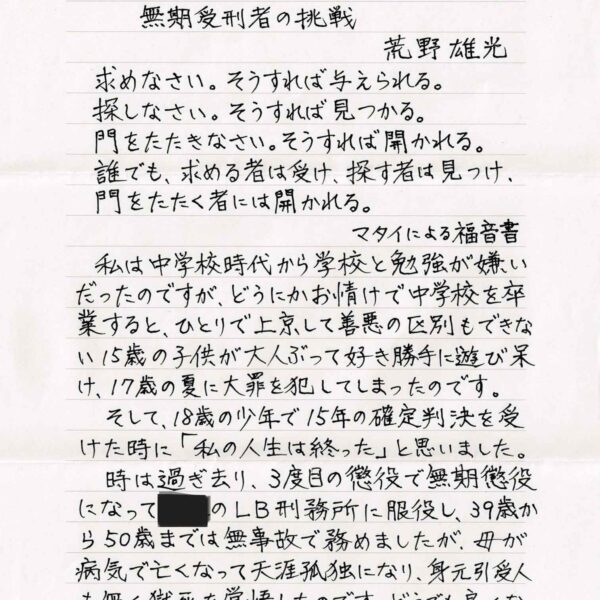 無期受刑者の挑戦
荒野雄光
求めなさい。そうすれば与えられる。
探しなさい。そうすれば見つかる。
門をたたきなさい。そうすれば開かれる。
誰でも、求める者は受け、探す者は見つけ、
門をたたく者には開かれる。
マタイによる福音書
私は中学校時代から学校と勉強が嫌い
だったのですが、どうにかお情けで中学校を卒
業すると、ひとりで上京して善悪の区別もできな
い15歳の子供が大人ぶって好き勝手に遊び呆
け、17歳の夏に大罪を犯してしまったのです。
そして、18歳の少年で15年の確定判決を受
けた時に「私の人生は終った」と思いました。
時は過ぎ去り、3度目の懲役で無期懲役
になって のLB刑務所に服役し、39歳か
ら50歳までは無事故で務めましたが、母が
病気で亡くなって天涯孤独になり、身元引受人
も無く獄死を覚悟したのです。